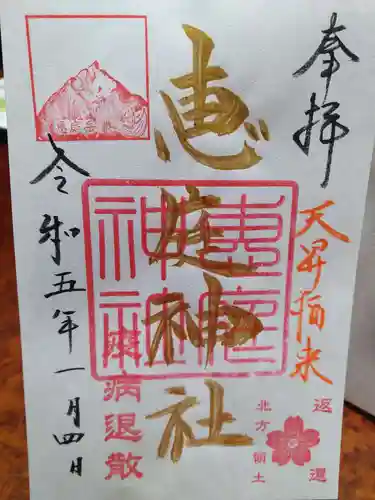 奉拝
天昇陌来
恵庭神社
恵庭
神社
疾病退散
北方領土
返還
令和五年一月四日